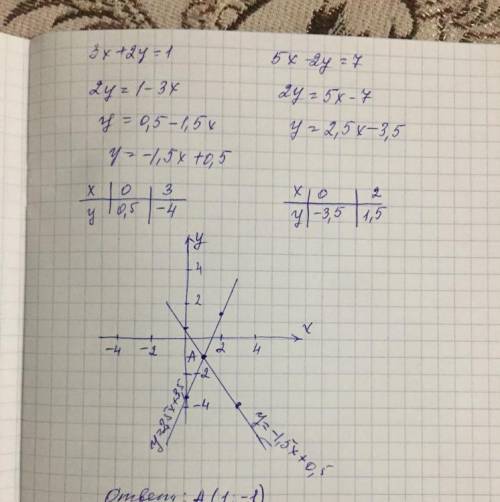 3x+2y=1
2y=1-3x
y=0,5-1,5x
y=-1,5x+0,5
x | 0 | 3
y | 0,5 | -4
5x-2y=7
2y=5x-7
y=2,5x-3,5
x | 0 | 2
y | -3,5 | 1,5
y
4
2
x
-4 -2 2 4
A
-2
-4
y=2,5x+3,5
y=-1,5x+0,5
Ответ: A(1;-1)